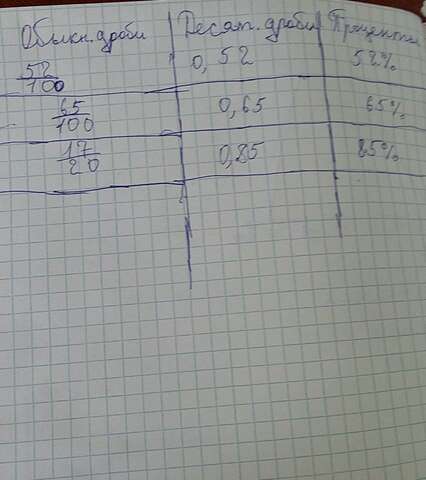 Обыкн. дроби Десят. дроби Проценты
52/100 0,52 52%
65/100 0,65 65%
17/20 0,85 85%